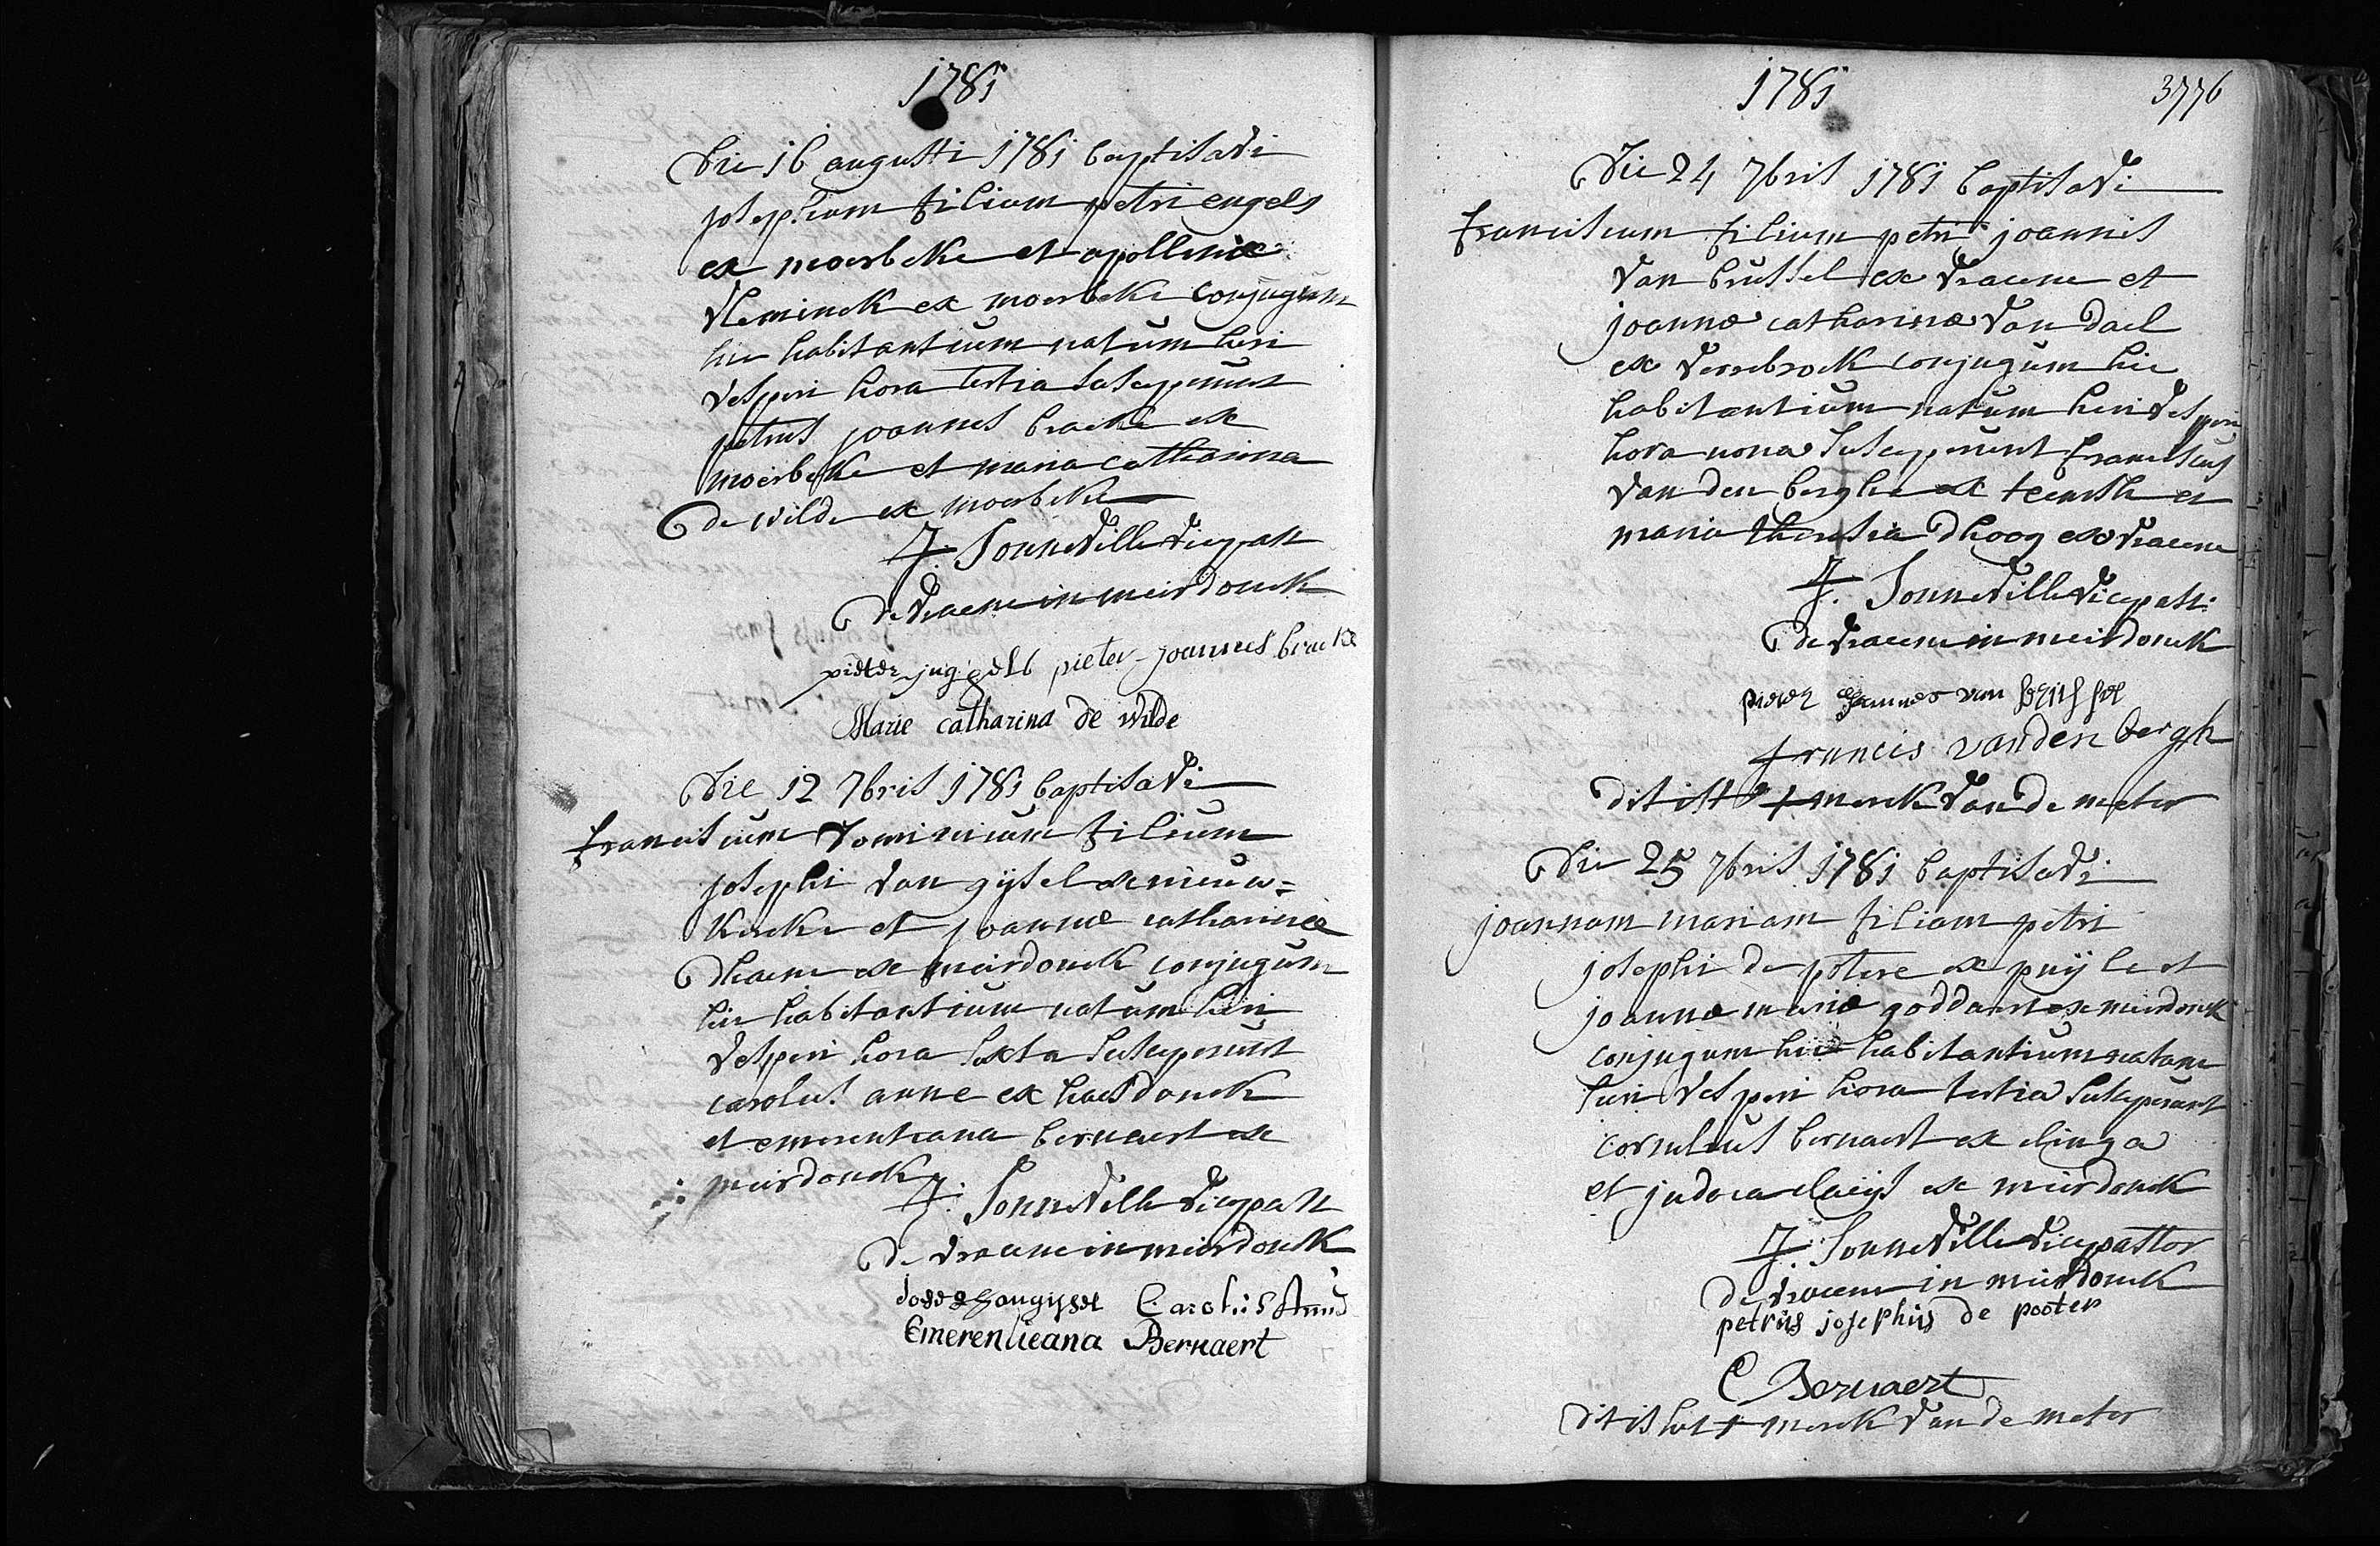 1781
Die 16 augusti 1781 baptisavi
josephum filium petri engels
ex moerbeke et apolloniæ
vleminck ex moerbeke conjugum
hic habitantium natum heri
vesperi hora tertia susceperunt
petrus joannes bracke ex
moerbeke et maria catharina
de wilde ex moerbeke
J. Sonneville vicepast
de vracene in meirdonck
pieter pieter joannes bracke
Marie catharina de wilde
Die 12 7bris 1781 baptisavi
franciscum dominicum filium
josephi van gijsel ex nieuw=
kercke et joannæ catharinæ
Dhaene ex meirdonck conjugum
hic habitantium natum heri
vesperi hora sexta susceperunt
carolus anne ex haesdonck
et emerentiana bernaert ex
meirdonck
J. Sonneville vicepast
de vracene in meirdonck
Carolus Anne
Emerentieana Bernaert
1781
3776
Die 24 7bris 1781 baptisavi
franciscum filium petri joannis
van brussel ex vracene et
joannæ catharinæ van dael
ex verrebroek conjugum hic
habitantium natum heri vesperi
hora nona susceperunt franciscus
van den berghe ex temsche et
maria theresia Dhoog ex vracene
J. Sonneville vicepast.
de vracene in meirdonck
pieter joannes van brussel
francis vanden bergh
dit ist + merck van de meter
Die 25 7bris 1781 baptisavi
joannam mariam filiam petri
josephi de potere ex puijle et
joannæ mariæ goddaert ex meirdonck
conjugum hic habitantium natam
heri vesperi hora tertia susceperunt
cornelius bernaert ex clinga
et judoca claeijs ex meirdonck
J. Sonneville vicepastor
de vracene in meirdonck
petrus josephus de pooter
C Bernaert
dit is het + merck van de meter